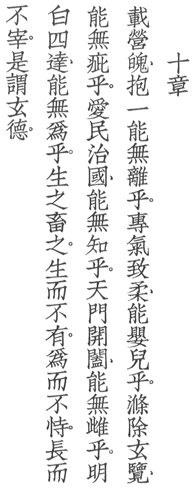 十章
載營魄抱一能無離乎。專氣致柔、能嬰兒乎。滌除玄覽、
能無疵乎。愛民治國、能無知乎。天門開闔、能無雌乎。明
白四達、能無為乎。生之畜之。生而不有。為而不恃。長而
不宰。是謂玄德。